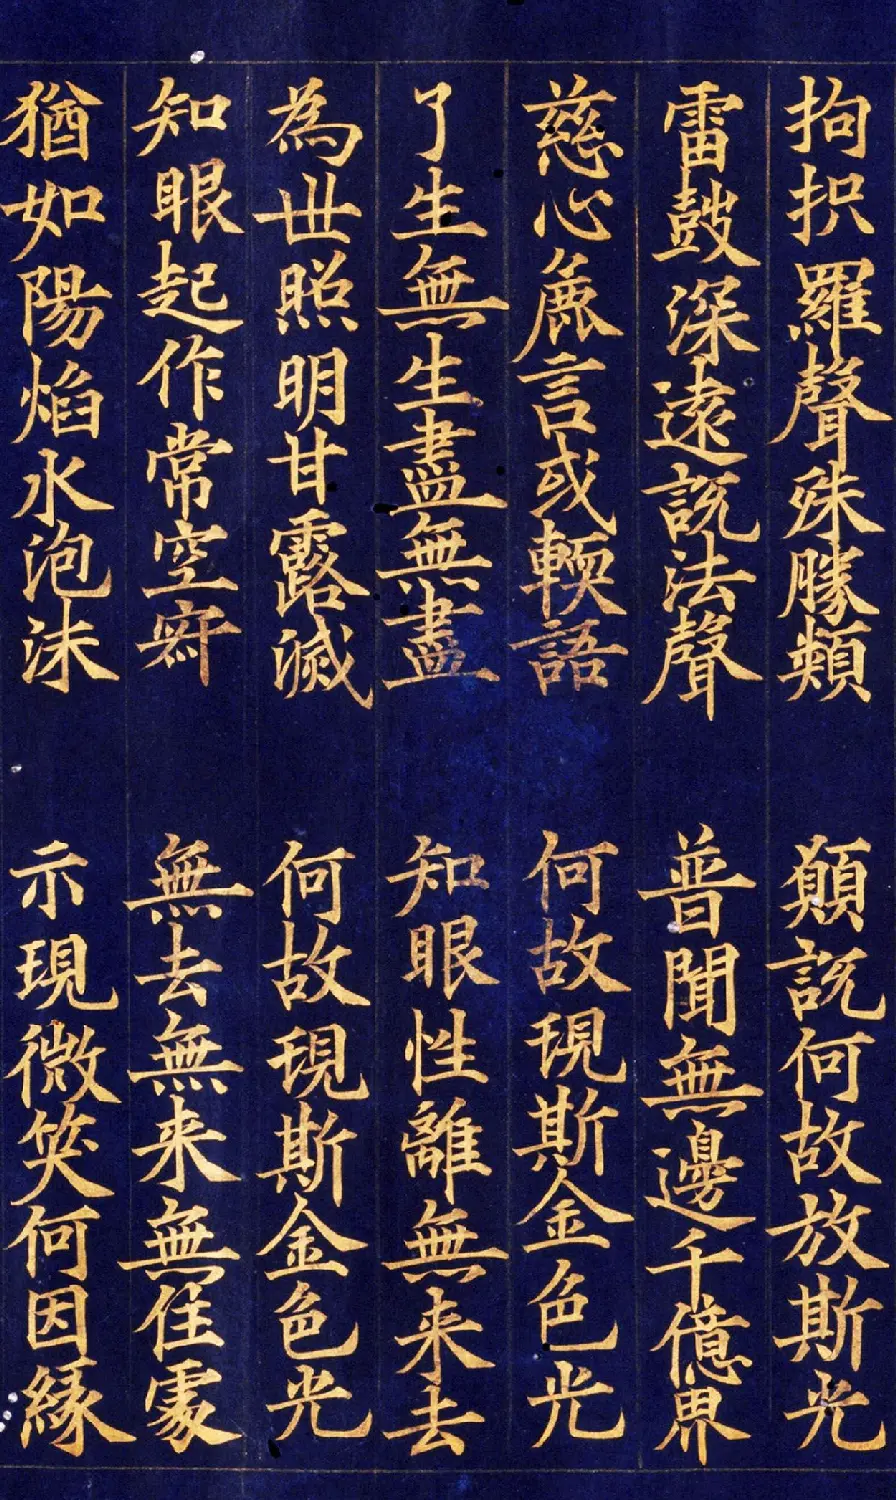 拘抧羅聲殊勝類 願説何故放斯光
雷鼓深遠説法聲 普聞無邊千億界
慈心麁言或輭語 何故現斯金色光
了生無生盡無盡 知眼性離無来去
為世照明甘露滅 何故現斯金色光
知眼起作常空寂 無去無来無住處
猶如陽焰水泡沫 示現微笑何因縁